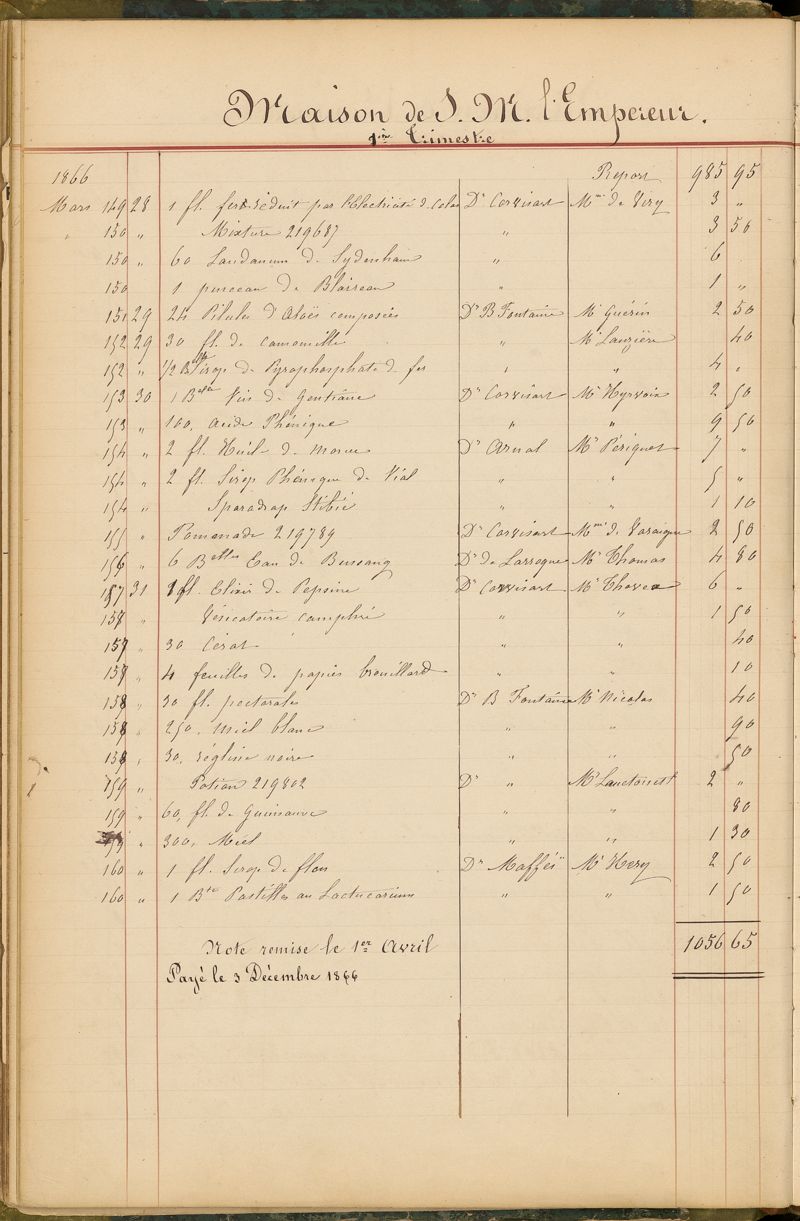 Maison de S. M. l'Empereur.
1er Trimestre
1866 Report 985 95
Mars 149 28 1 fl. fer réduit par l'Electricité d. Colas Dr Corvisart Mme de Viry 3 "
" 150 " Mixture 219687 " 3 50
150 " 60 Laudanum de Sydenham " 6
150 1 pinceau de Blaireau " 1 "
151 29 24 Pilules d'Aloës composées Dr B Fontaine Mr Guérin 2 50
152 29 30 fl. de camomille " Mr Lauzière 40
152 " 1/2 Blle Sirop de Pyrophosphate d. fer " " 4 "
153 30 1 Blle Vin de Gentiane Dr Corvisart Mr Hyrvoix 2 50
153 " 100, acide Phénique " " 9 50
154 " 2 fl. Huile de Morue Dr Arnal Mr Périquet 7 "
154 " 2 fl. Sirop Phénique de Vial " " 5 "
154 " Sparadrap Stibié " " 1 10
155 " Pommade 219789 Dr Corvisart Mme de 2 50
156 " 6 Blles Eau de Bussang Dr de Larroque Mr Thomas 4 80
157 31 1 fl. Elixir de Pepsine Dr Corvisart Mr 6 "
157 " Vésicatoire camphré " " 1 50
157 " 30 Cérat " " 40
157 " 4 feuilles de papier brouillard " " 10
158 " 30 fl. pectorales Dr B Fontaine Mr Nicolas 40
158 " 250, miel blanc " " 90
158 " 30, réglisse noire " " 50
159 " Potion 219802 Dr " Mr 2 "
159 " 60, fl. de Guimauve " " 80
" 300, Miel " " 1 30
160 " 1 fl. Sirop de flon Dr Maffei Mr Hery 2 50
160 " 1 Bte Pastilles au Lactucarium " " 1 50
Note remise le 1er Avril 1056 65
Payé le 3 Décembre 1866